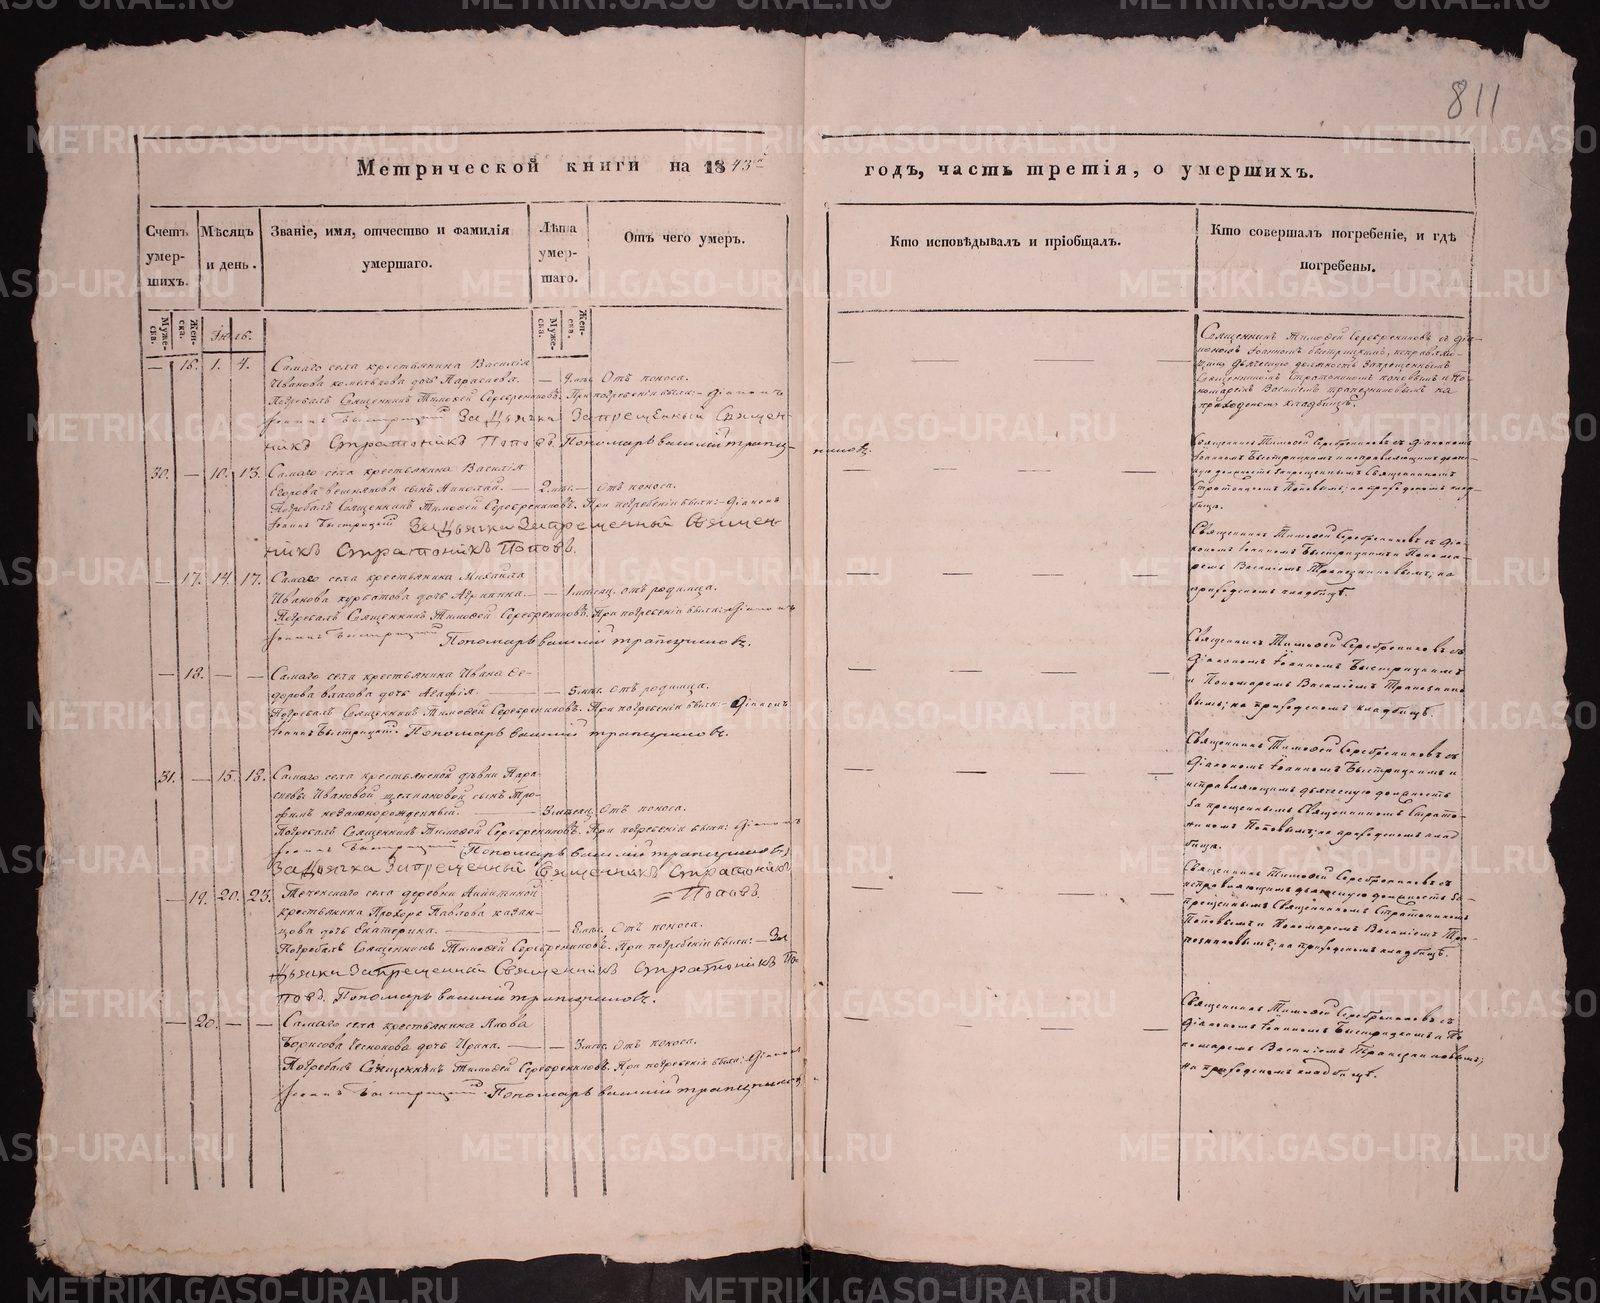 811
Метрической книги на 1843 годъ, часть третія, о умершихъ.
Счетъ умер- шихъ.
Мѣсяцъ и день.
Званіе, имя, отчество и фамилія умершаго.
Лѣта умер- шаго.
Отъ чего умеръ.
Кто исповѣдывалъ и пріобщалъ.
Кто совершалъ погребеніе, и гдѣ погребены.
Муже- ска.
Жен- ска.
Муже- ска.
Жен- ска.
Іюль.
— 16. 1. 4. Самаго села крестьянина Василія
Иванова дочь Параскева. — Отъ поноса.
Погребалъ Священникъ Тимофей Серебренниковъ. При погребеніи были: Діаконъ
Іоаннъ Быстрицкій За Дьячка Запрещенный Священ-
никъ Стратоникъ Поповъ. Пономарь василий трапез-
никовъ.
Священникъ Тимофей Серебренниковъ съ Діа-
кономъ Іоанномъ Быстрицкимъ, исправляю-
щимъ дьяческую должность Запрещеннымъ
Священникомъ Стратоникомъ Поповымъ и По-
номаремъ Василіемъ Трапезниковымъ на
приходскомъ кладбищѣ.
30. — 10. 13. Самаго села крестьянина Василія
Егорова сынъ Николай. — 2 мѣс. — отъ поноса.
Погребалъ Священникъ Тимофей Серебренниковъ. При погребеніи были: Діаконъ
Іоаннъ Быстрицкій За Дьячка Запрещенный Священ-
никъ Стратоникъ Поповъ.
Священникъ Тимофей Серебренниковъ съ Діакономъ
Іоанномъ Быстрицкимъ и исправляющимъ
должность запрещеннымъ Священникомъ
Стратоникомъ Поповымъ; на приходскомъ клад-
бищѣ.
— 17. 14. 17. Самаго села крестьянина Михаила
Иванова Курбатова дочь Агрипина. — 1 мѣсяц. отъ родимца.
Погребалъ Священникъ Тимофей Серебренниковъ. При погребеніи были: Діаконъ
Іоаннъ Быстрицкій Пономарь василий трапезниковъ.
Священникъ Тимофей Серебренниковъ съ Діа-
кономъ Іоанномъ Быстрицкимъ и Понома-
ремъ Василіемъ Трапезниковымъ; на
приходскомъ кладбищѣ.
— 18. — — Самаго села крестьянина Ивана Ѳе-
дорова Власова дочь Агафія. — 5 мѣс. Отъ родимца.
Погребалъ Священникъ Тимофей Серебренниковъ. При погребеніи были: Діаконъ
Іоаннъ Быстрицкій Пономарь василий трапезниковъ.
Священникъ Тимофей Серебренниковъ съ
Діакономъ Іоанномъ Быстрицкимъ
и Пономаремъ Василіемъ Трапезнико-
вымъ; на приходскомъ кладбищѣ.
31. — 15. 18. Самаго села крестьянской дѣвки Пара-
скевы Ивановой сынъ Тро-
фимъ незаконорожденный. — 3 мѣсяц. Отъ поноса.
Погребалъ Священникъ Тимофей Серебренниковъ. При погребеніи были: Діаконъ
Іоаннъ Быстрицкій Пономарь василий трапезниковъ
За Дьячка Запрещенный Священникъ Стратоникъ
Поповъ.
Священникъ Тимофей Серебренниковъ съ
Діакономъ Іоанномъ Быстрицкимъ и
исправляющимъ дьяческую должность
Запрещеннымъ Священникомъ Страто-
никомъ Поповымъ; на приходскомъ клад-
бищѣ.
— 19. 20. 23. Теченскаго села деревни
крестьянина Прохора Павлова Казан-
цова дочь Екатерина. — Отъ поноса.
Погребалъ Священникъ Тимофей Серебренниковъ. При погребеніи были: — За
Дьячка Запрещенный Священникъ Стратоникъ По-
повъ. Пономарь василий трапезниковъ.
Священникъ Тимофей Серебренниковъ съ
исправляющимъ дьяческую должность За-
прещеннымъ Священникомъ Стратоникомъ
Поповымъ и Пономаремъ Василіемъ Тра-
пезниковымъ; на приходскомъ кладбищѣ.
— 20. — — Самаго села крестьянина Якова
Борисова Чеснокова дочь Ирина. — 3 мѣс. Отъ поноса.
Погребалъ Священникъ Тимофей Серебренниковъ. При погребеніи были: Діаконъ
Іоаннъ Быстрицкій. Пономарь василий трапезниковъ
Священникъ Тимофей Серебренниковъ съ
Діакономъ Іоанномъ Быстрицкимъ и По-
номаремъ Василіемъ Трапезниковымъ;
на приходскомъ кладбищѣ.
METRIKI.GASO-URAL.RU